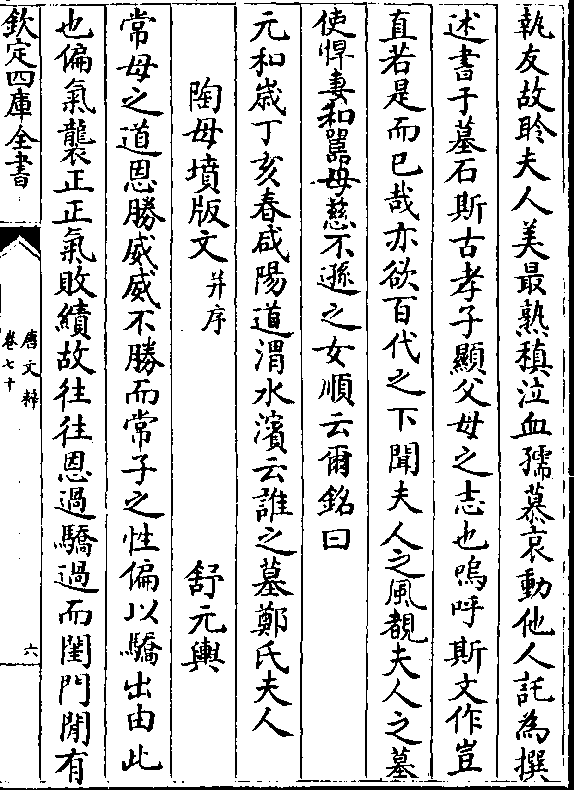 執友故聆夫人美最熟稹泣血孺慕哀動他人託為撰
述書于墓石斯古孝子顯父母之志也嗚呼斯文作豈
直若是而已哉亦欲百代之下聞夫人之風覩夫人之墓
使悍妻和嚚母慈不遜之女順云爾銘曰
元和歲丁亥春咸陽道渭水濱云誰之墓鄭氏夫人
陶母墳版文 并序
舒元輿
常母之道恩勝威威不勝而常子之性偏以驕出由此
也偏氣襲正正氣敗績故往往恩過驕過而閨門閒有
欽定四庫全書
唐文粹
卷七十
六